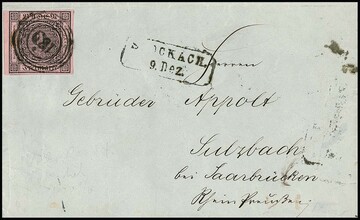 STOCKACH.
9. Dez.
Herren
Gebrüder Appolt
Sulzbach
bei Saarbrücken
Rhein Preußen